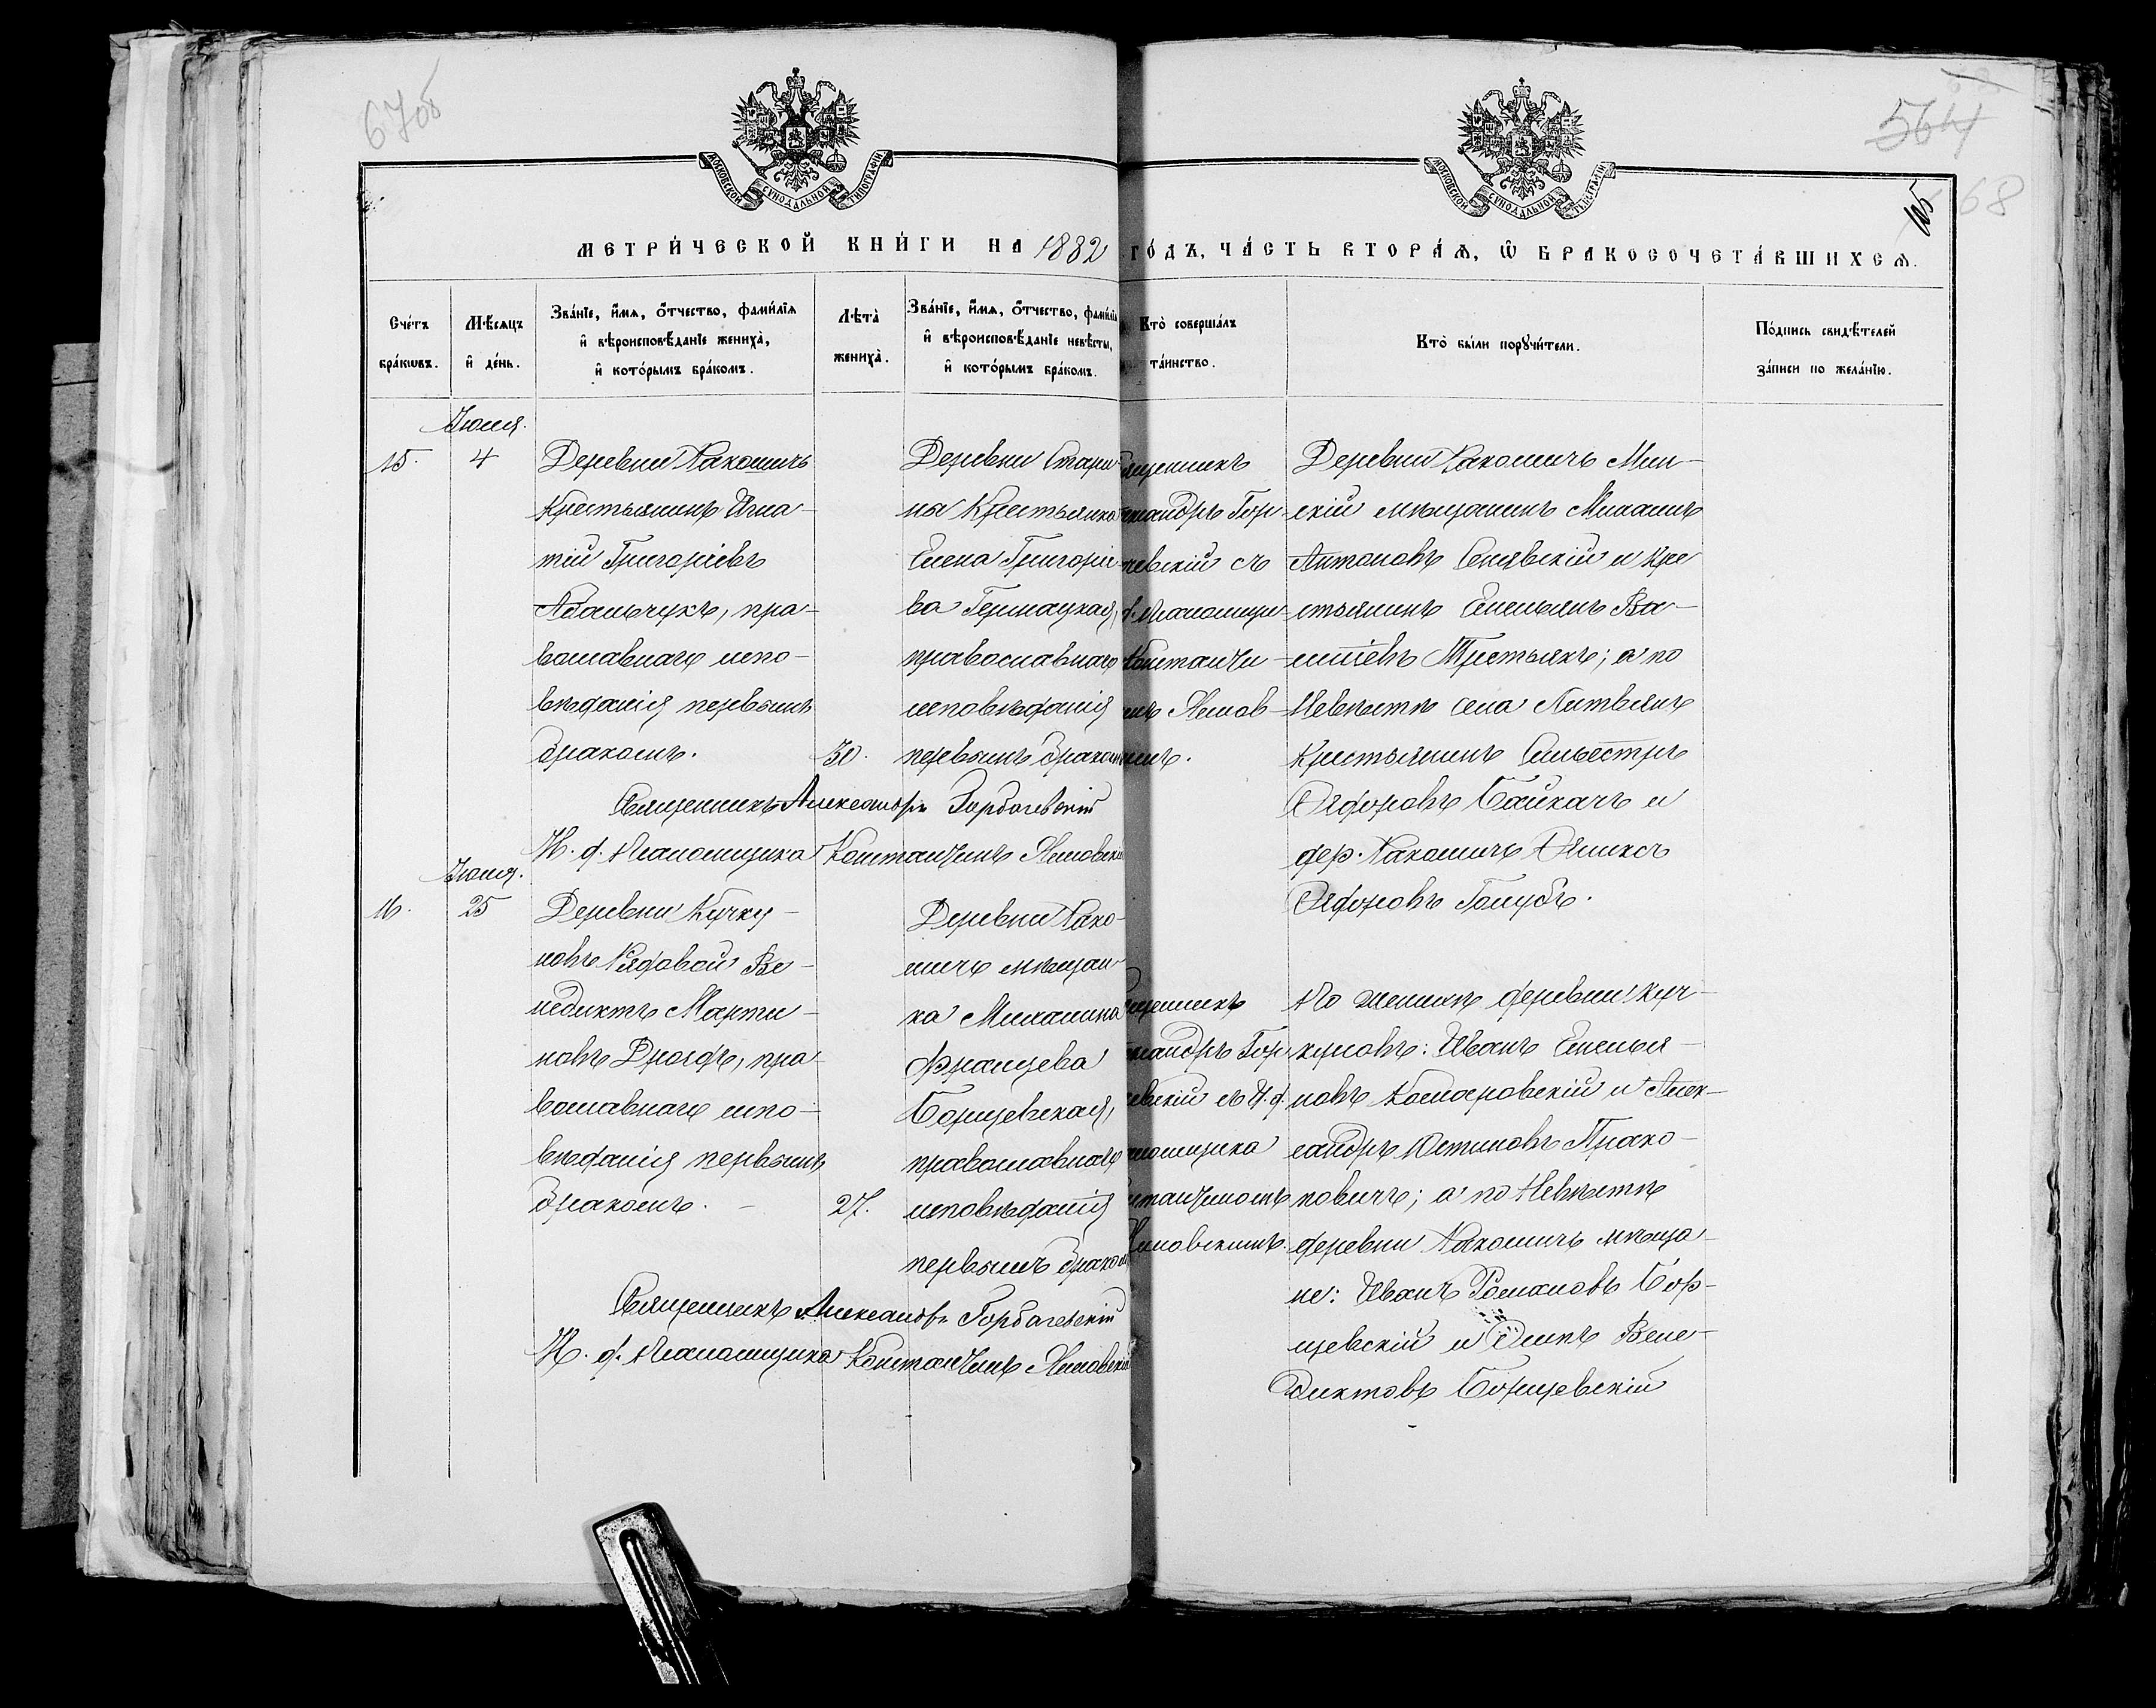 67об
564
68
МОСКОВСКОЙ СУНОДАЛЬНОЙ ТИПОГРАФІИ
МОСКОВСКОЙ СУНОДАЛЬНОЙ ТИПОГРАФІИ
МЕТРИ́ЧЕСКОЙ КНИ́ГИ НА 1882 ГО́ДЪ, ЧА́СТЬ ВТОРА́Ѧ, Ѡ҆ БРАКОСОЧЕТА́ВШИХСѦ.
Сче́тъ
бра́кѡвъ.
Мѣ́сѧцъ
и҆ де́нь.
Зва́нїе, и҆́мѧ, о҆́тчество, фами́лїѧ
и҆ вѣроисповѣ́данїе жениха̀,
и҆ кото́рымъ бра́комъ.
Лѣта̀
жениха̀.
Зва́нїе, и҆́мѧ, о҆́тчество, фами́лїѧ
и҆ вѣроисповѣ́данїе невѣ́сты,
и҆ кото́рымъ бра́комъ.
Кто̀ соверша́лъ
та́инство.
Кто̀ бы́ли порꙋчи́тели.
По́дпись свидѣ́телей
за́писи по жела́нїю.
Іюля.
15.
4
Деревни Рахошичъ
Крестьянинъ Игна-
тій Григоріевъ
Адамчукъ, пра-
вославнаго испо-
вѣданія первымъ
бракомъ.
30.
Деревни Стари-
на Крестьянка
Елена Григоріе-
ва Гернацкая,
православнаго
исповѣданія
первымъ бракомъ
щенникъ
ксандръ Гор-
чевскій съ
ф. Псаломщи-
Константи-
мъ Лисов-
имъ.
Деревни Рахошичъ Мин-
скій мѣщанинъ Михаилъ
Антоновъ Синявскій и Кре
стьянинъ Емельянъ Ва-
силіевъ Третьякъ; а по
Невѣстѣ села Литвянъ
Крестьянинъ Сильвестръ
Ѳедоровъ Байкачъ и
дер. Рахошичъ Ѳомка
Ѳедоровъ Голубъ.
Священникъ Александръ Горбачевскій
И. д. Псаломщика Константинъ Лисовскій
Іюля.
16.
25
Деревни Кучку-
новъ Рядовой Ве-
недиктъ Марти-
новъ Дроздъ, пра-
вославнаго испо-
вѣданія первымъ
бракомъ.
27.
Деревни Рахо-
шичъ мѣщан-
ка Михалина
Францева
Борщевская,
православнаго
исповѣданія
первымъ браком
щенникъ
ксандръ Гор
чевскій съ И. д.
ломщика
нстантиномъ
Лисовскимъ.
По женихѣ деревни Куч-
куновъ: Иванъ Емелья-
новъ Комаровскій и Алек-
сандръ Устиновъ Прако-
повичъ; а по Невѣстѣ
деревни Рахошичъ мѣща-
не: Иванъ Романовъ Бор-
щевскій и Осипъ Вене-
диктовъ Борщевскій
Священникъ Александръ Горбачевскій
И. д. Псаломщика Константинъ Лисовскій